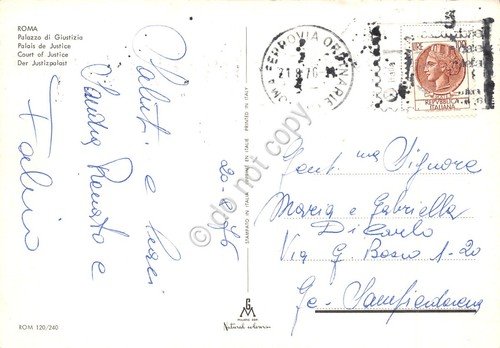 ROMA
Palazzo di Giustizia
Palais de Justice
Court of Justice
Der Justizpalast
Saluti e baci
Sandra Renato e
Fabio
20-8-76
STAMPATO IN ITALIA PRINTED IN ITALY
ROMA FERROVIA ORDINARIE
21.8.76
LIRE 100
REPVBBLICA
ITALIANA
Gent.ma Signore
Maria e Gabriella
Di Carlo
Via G. Bosco 1-20
Ge- Sampierdarena
do not copy
ROM 120/240